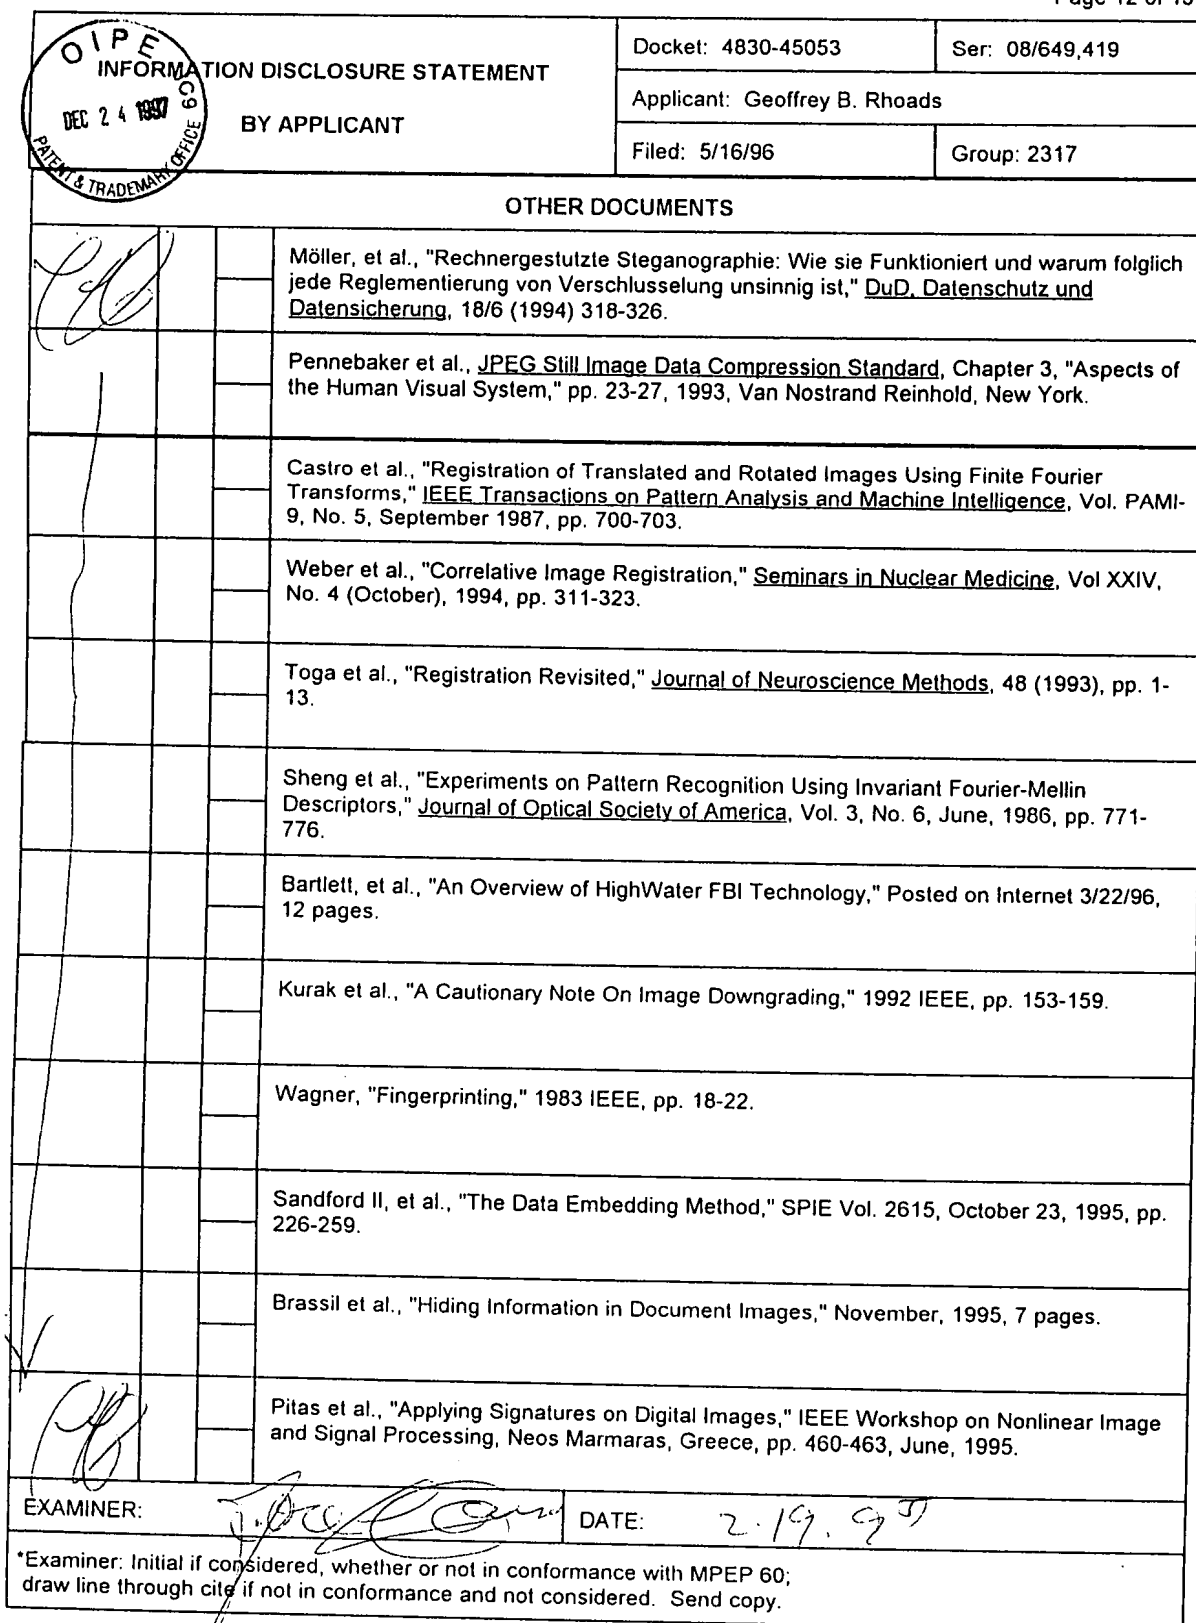 Page 12 of
OIPE
INFORMATION DISCLOSURE STATEMENT
BY APPLICANT
DEC 24 1997
PATENT & TRADEMARK OFFICE
Docket: 4830-45053
Ser: 08/649,419
Applicant: Geoffrey B. Rhoads
Filed: 5/16/96
Group: 2317
OTHER DOCUMENTS
Möller, et al., "Rechnergestutzte Steganographie: Wie sie Funktioniert und warum folglich
jede Reglementierung von Verschlusselung unsinnig ist," DuD, Datenschutz und
Datensicherung, 18/6 (1994) 318-326.
Pennebaker et al., JPEG Still Image Data Compression Standard, Chapter 3, "Aspects of
the Human Visual System," pp. 23-27, 1993, Van Nostrand Reinhold, New York.
Castro et al., "Registration of Translated and Rotated Images Using Finite Fourier
Transforms," IEEE Transactions on Pattern Analysis and Machine Intelligence, Vol. PAMI-
9, No. 5, September 1987, pp. 700-703.
Weber et al., "Correlative Image Registration," Seminars in Nuclear Medicine, Vol XXIV,
No. 4 (October), 1994, pp. 311-323.
Toga et al., "Registration Revisited," Journal of Neuroscience Methods, 48 (1993), pp. 1-
13.
Sheng et al., "Experiments on Pattern Recognition Using Invariant Fourier-Mellin
Descriptors," Journal of Optical Society of America, Vol. 3, No. 6, June, 1986, pp. 771-
776.
Bartlett, et al., "An Overview of HighWater FBI Technology," Posted on Internet 3/22/96,
12 pages.
Kurak et al., "A Cautionary Note On Image Downgrading," 1992 IEEE, pp. 153-159.
Wagner, "Fingerprinting," 1983 IEEE, pp. 18-22.
Sandford II, et al., "The Data Embedding Method," SPIE Vol. 2615, October 23, 1995, pp.
226-259.
Brassil et al., "Hiding Information in Document Images," November, 1995, 7 pages.
Pitas et al., "Applying Signatures on Digital Images," IEEE Workshop on Nonlinear Image
and Signal Processing, Neos Marmaras, Greece, pp. 460-463, June, 1995.
EXAMINER:
DATE:
*Examiner: Initial if considered, whether or not in conformance with MPEP 60;
draw line through cite if not in conformance and not considered. Send copy.